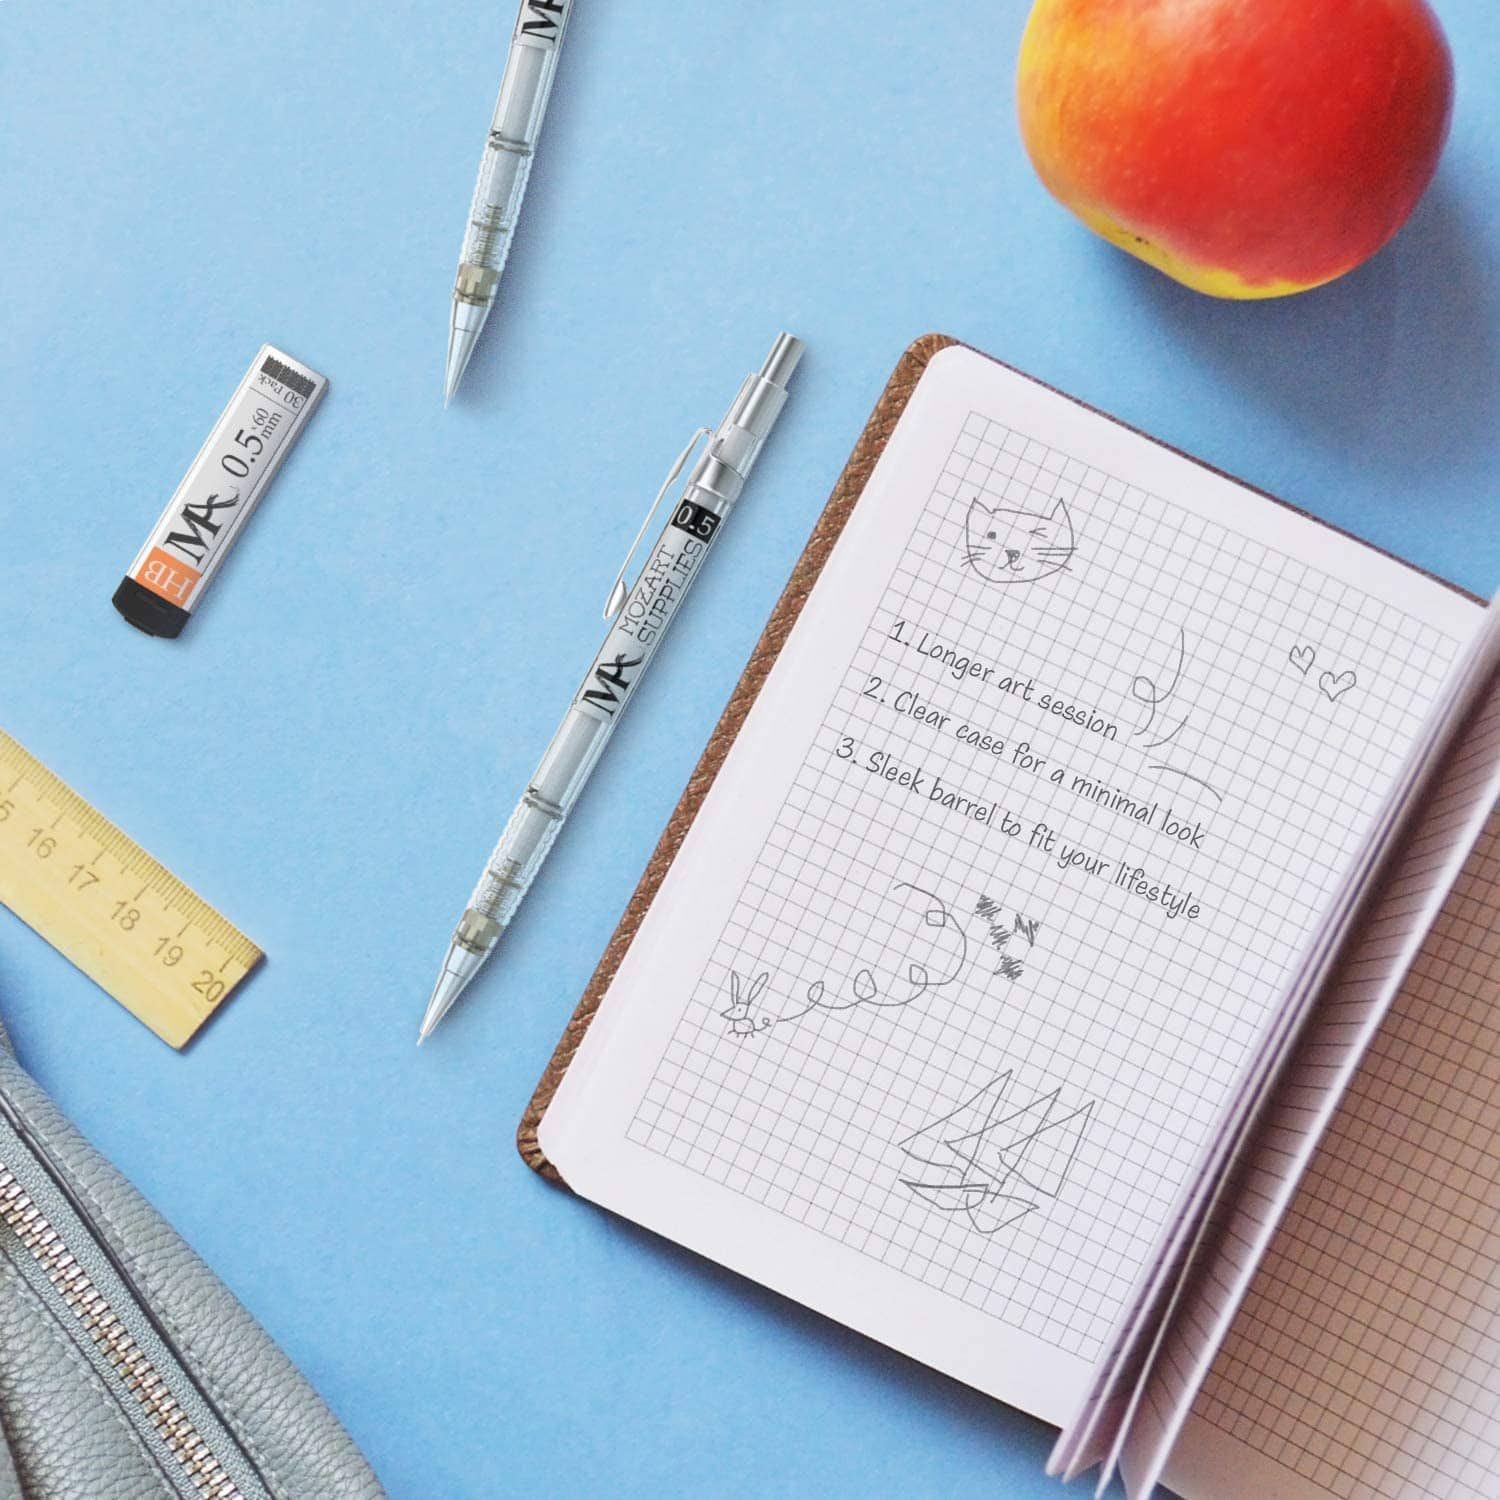 MA
30 Pack
MA 0.5 x60 mm
HB
0.5
MOZART
SUPPLIES
MA
1. Longer art session
2. Clear case for a minimal look
3. Sleek barrel to fit your lifestyle
5 16 17 18 19 20